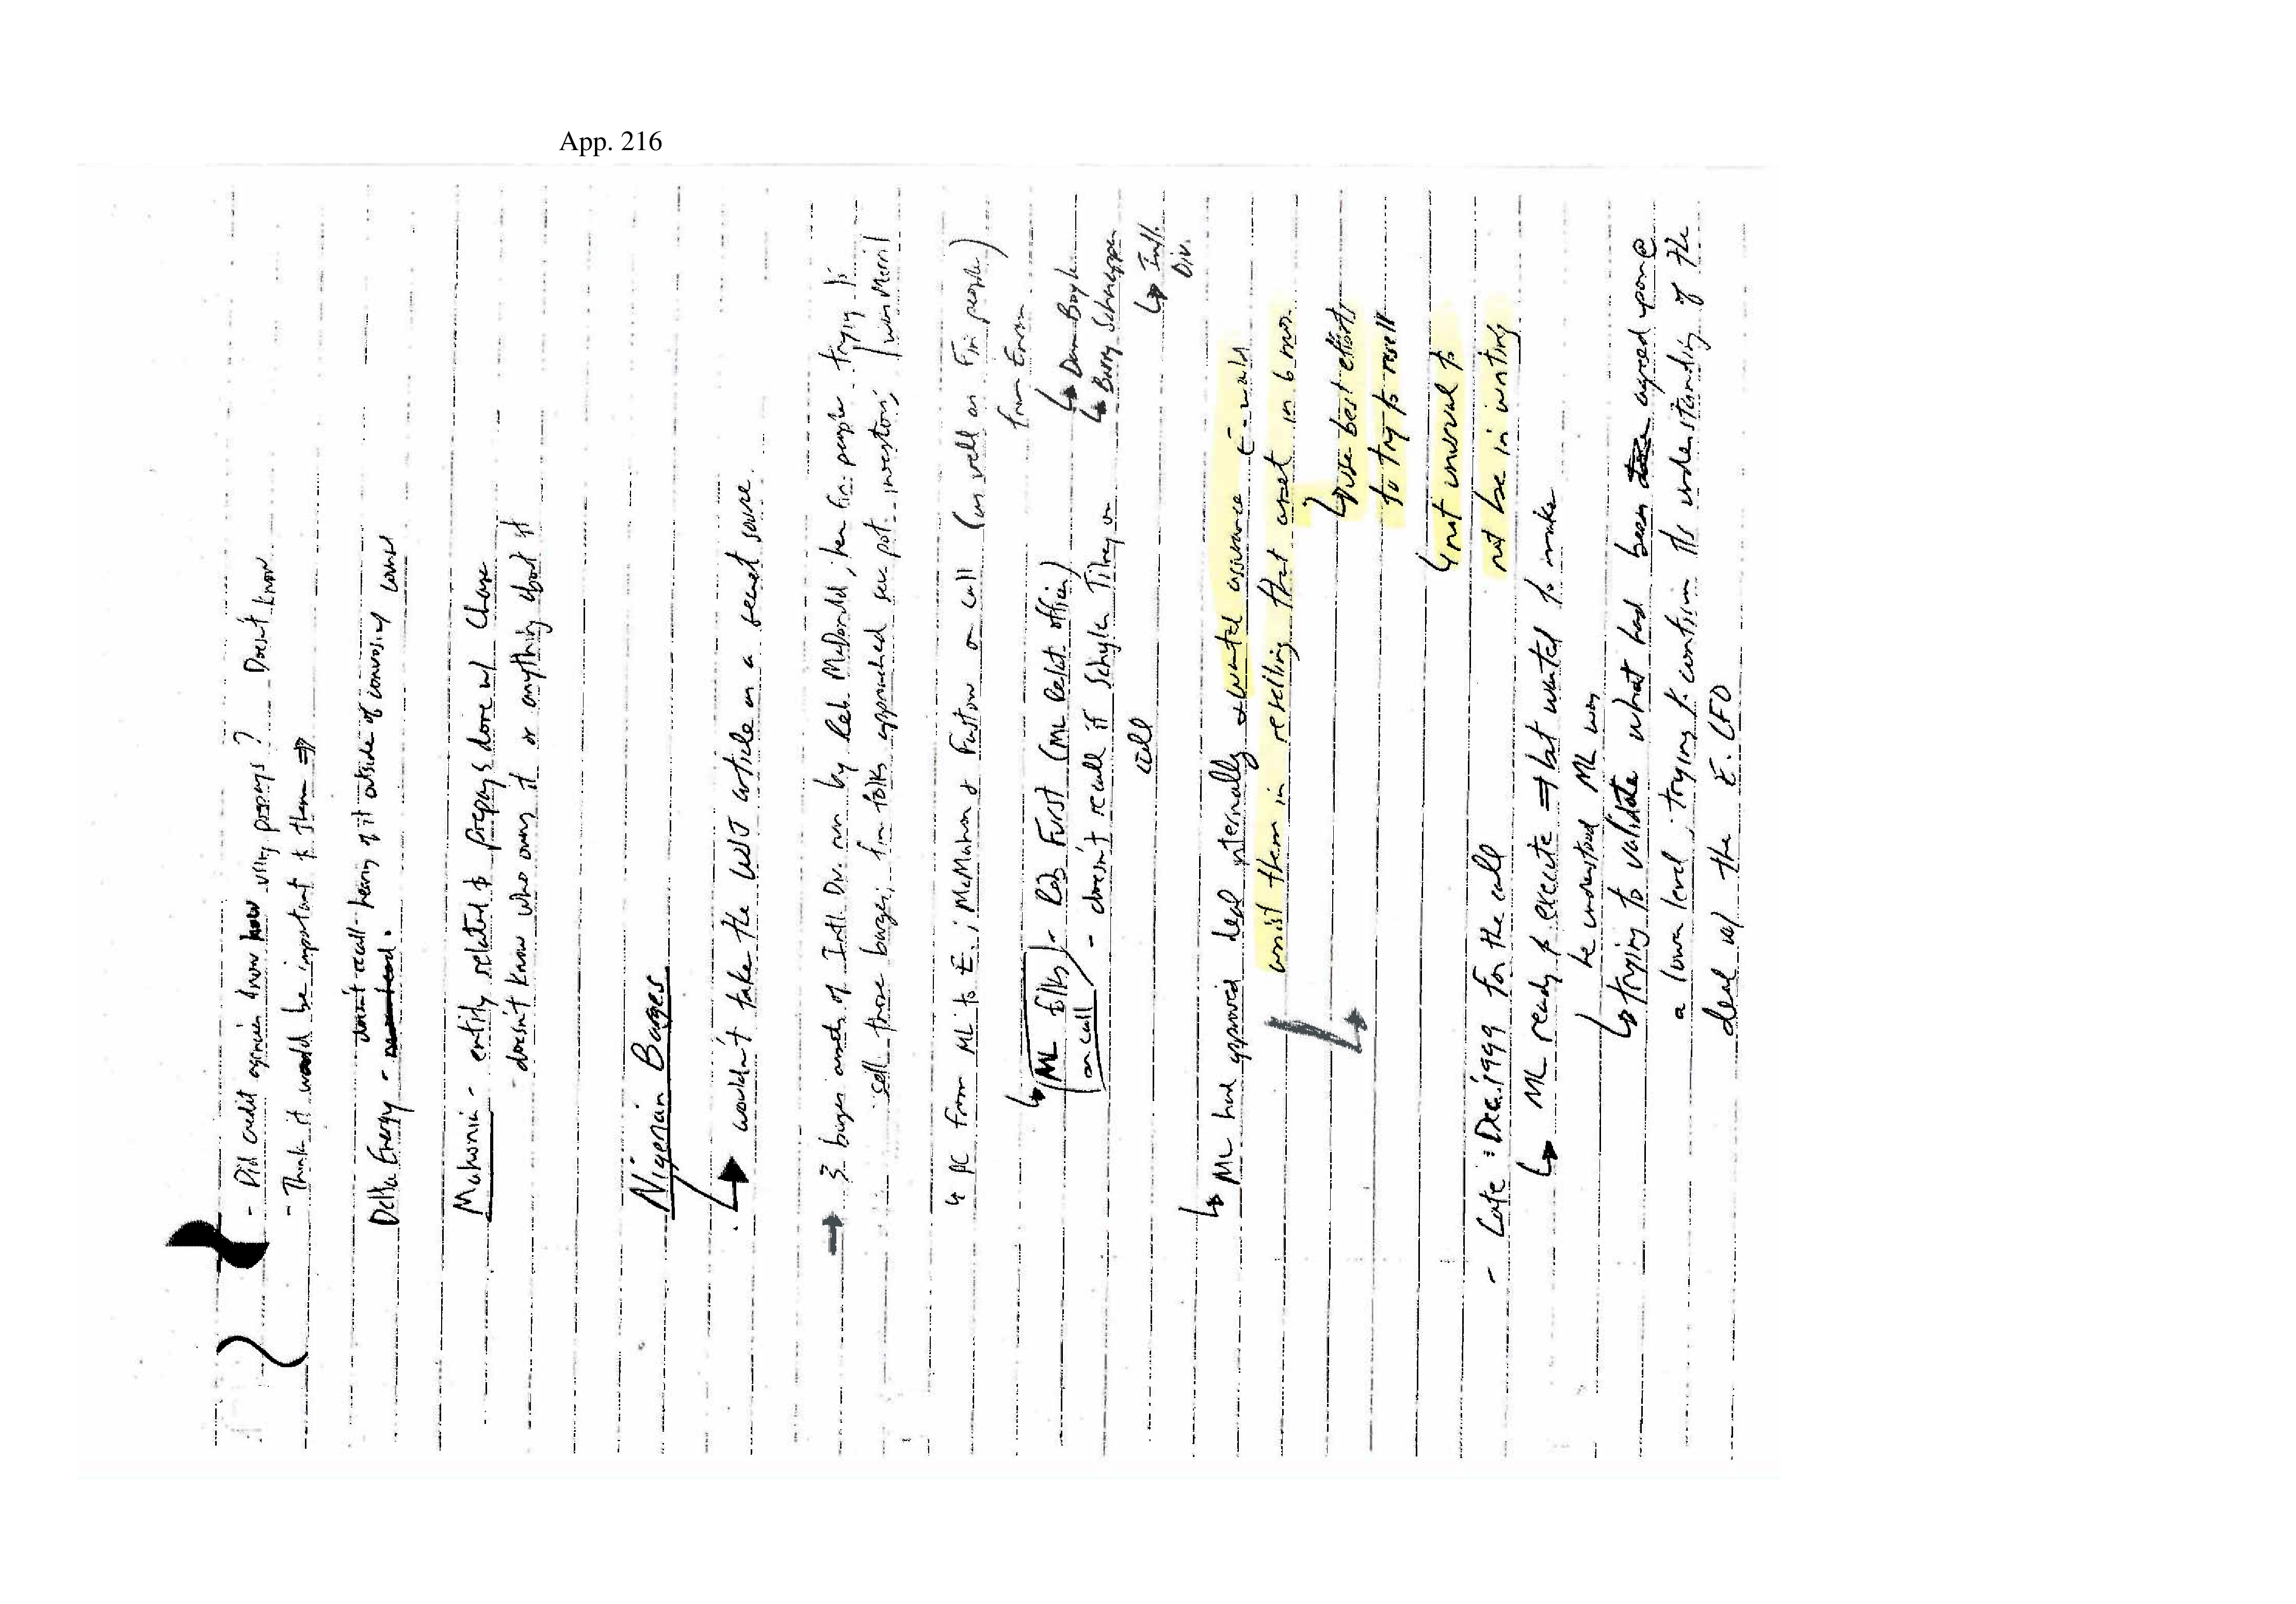 App. 216
- Did credit agencies know using prepays? Doesn't know
- Think it would be important to them ⇒
Delta Energy - doesn't recall hearing of it outside of conversing w/
Mahonia - entity related to prepays done w/ Chase
- doesn't know who owns it or anything about it
Nigerian Barges
↳ wouldn't take the WSJ article as a secret source.
→ 3 barges assets of Intl. Div. run by Reb. McDonald; her fin. people trying to
sell those barges; fin folks approached sev. pot. investors; 1 was Merrill
↳ PC from ML to E.; McMahon & Fastow on call (as well as Fin people)
from Enron
↳ Dan Boyle
↳ ML folks on call - Rob Furst (ML Relat. officer)
↳ Barry Schnapper
- doesn't recall if Schyler Tilney on
call
↳ Intl.
Div.
↳ ML had approved deal internally & wanted assurance E would
assist them in reselling that asset in 6 mos.
↳ use best efforts
to try to resell
↳ not unusual to
not be in writing
- Late: Dec. 1999 for the call
↳ ML ready to execute ⇒ but wanted to make
he understood ML was
↳ trying to validate what had been agreed upon @
a lower level; trying to confirm its understanding of the
deal w/ the E. CFO